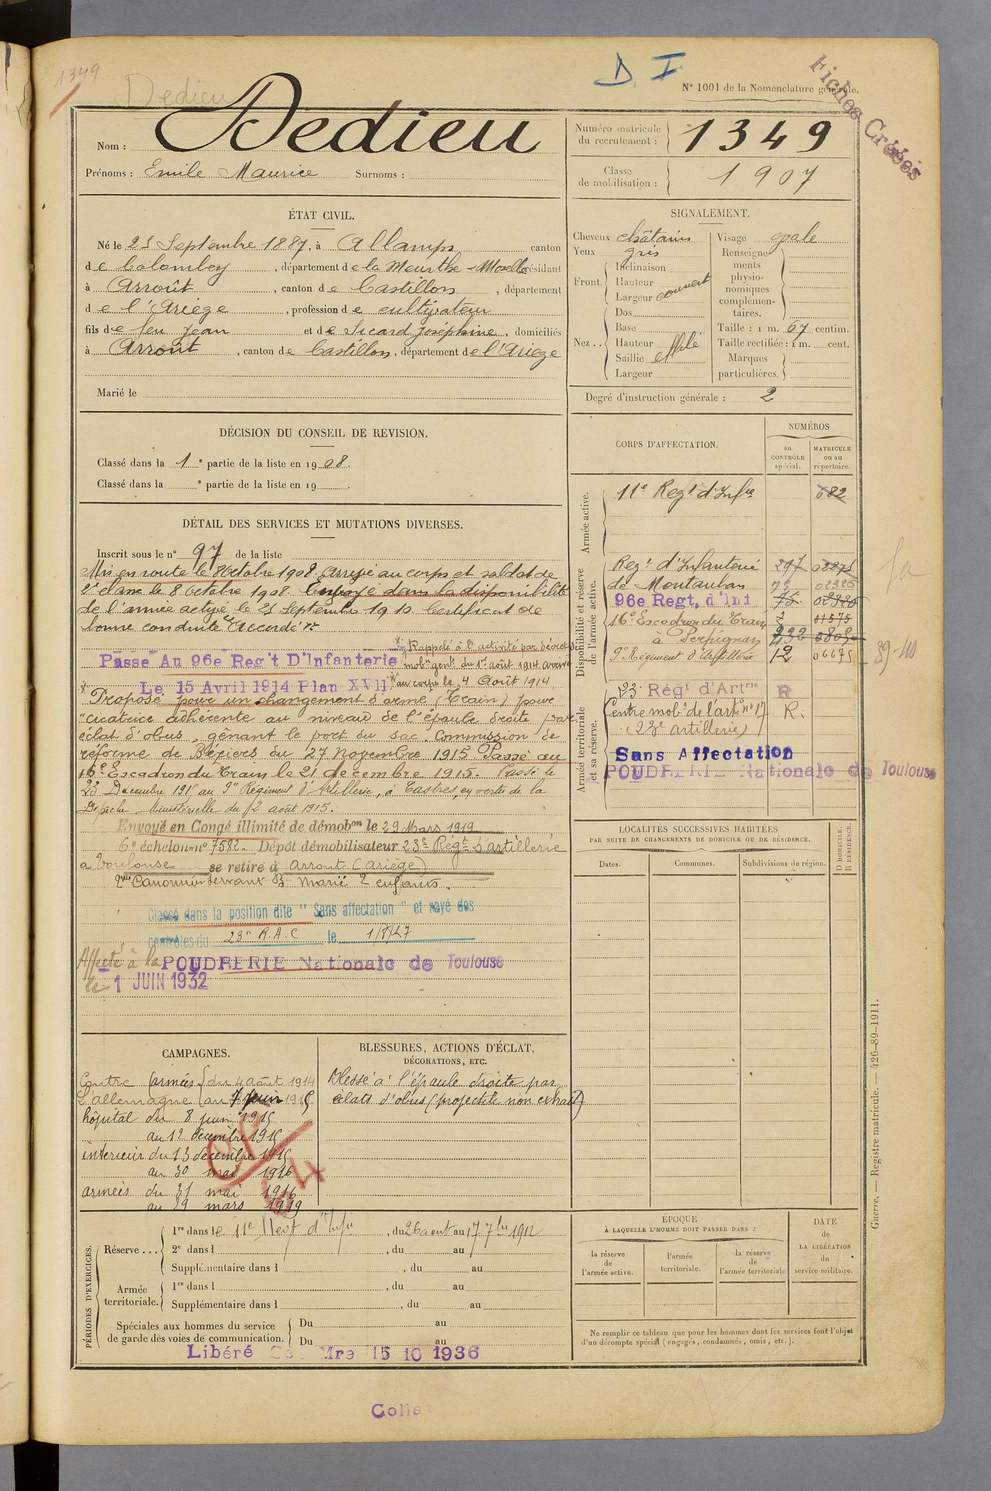 1349
Dedieu
D. I.
Fiches Créées
N° 1001 de la Nomenclature générale.
Nom : Dedieu
Prénoms : Emile Maurice Surnoms :
Numéro matricule du recrutement : 1349
Classe de mobilisation : 1907
ÉTAT CIVIL.
Né le 25 Septembre 1887, à Allamps canton
de Colombey, département de la Meurthe-Moselle résidant
à Arrout, canton de Castillon, département
de l'Ariège, profession de cultivateur
fils de feu Jean et de Sicard Joséphine, domiciliés
à Arrout, canton de Castillon, département de l'Ariège
Marié le
SIGNALEMENT.
Cheveux châtains
Yeux gris
Front. Inclinaison
Hauteur
Largeur couvert
Nez.. Dos
Base
Hauteur
Saillie effilé
Largeur
Visage ovale
Renseignements physionomiques complémentaires.
Taille : 1 m. 67 centim.
Taille rectifiée : 1 m. cent.
Marques particulières.
Degré d'instruction générale : 2
DÉCISION DU CONSEIL DE REVISION.
Classé dans la 1e partie de la liste en 1908.
Classé dans la e partie de la liste en 19
CORPS D'AFFECTATION.
NUMÉROS
au CONTRÔLE spécial.
MATRICULE ou au répertoire.
Armée active.
11e Regt d'Infie 682
Disponibilité et réserve de l'armée active.
Regt d'Infanterie 297
de Montauban
96e Regt. d'Inf 75
16e Escadron du Train 2 01575
à Perpignan
9e Régiment d'Artillerie 12 06675
39-40
Armée territoriale et sa réserve.
23e Régt d'Artrie R
Centre mobe de l'artie n° 17 R.
(23e artillerie)
Sans Affectation
POUDRERIE Nationale de Toulouse
DÉTAIL DES SERVICES ET MUTATIONS DIVERSES.
Inscrit sous le n° 97 de la liste
Mis en route le 8 Octobre 1908. Arrivé au corps et soldat de
2e classe le 8 Octobre 1908. Envoyé dans la disponibilité
de l'armée active le 25 septembre 1910. Certificat de
bonne conduite "Accordé".
Rappelé à l'activité par décret de
Passé Au 96e Reg't D'Infanterie mobon gent du 1er août 1914. Arrivé
Le 15 Avril 1914 Plan XVII au corps le 4 Août 1914
Proposé pour un changement d'arme (Train) pour
"cicatrice adhérente au niveau de l'épaule droite par
éclat d'obus, gênant le port du sac. Commission de
réforme de Béziers du 27 Novembre 1915. Passé au
16e Escadron du Train le 21 décembre 1915. Passé le
au 9e Régiment d'Artillerie, à Castres, en vertu de la
Dépêche Ministérielle du 12 août 1915.
Envoyé en Congé illimité de démobon le 29 Mars 1919
6e échelon n° 7582. Dépôt démobilisateur 23e Régt d'artillerie
à Toulouse se retire à Arrout (Ariège)
Canonnier servant Marié 2 enfants.
Classé dans la position dite "Sans affectation" et rayé des
contrôles du 23e R.A.C le
Affecté à la POUDRERIE Nationale de Toulouse
le 1 JUIN 1932
LOCALITÉS SUCCESSIVES HABITÉES
PAR SUITE DE CHANGEMENTS DE DOMICILE OU DE RÉSIDENCE.
Dates. Communes. Subdivisions de région. D DOMICILE. R RÉSIDENCE.
CAMPAGNES.
Contre (armées) du 4 août 1914
L'allemagne au 7 juin 1915
hôpital du 8 juin 1915
au 12 décembre 1915
intérieur du 13 décembre 1915
au 30 mai 1916
armées du 31 mai 1916
au 29 mars 1919
BLESSURES, ACTIONS D'ÉCLAT,
DÉCORATIONS, ETC.
Blessé à l'épaule droite par
éclats d'obus (projectile non extrait)
PÉRIODES D'EXERCICES.
Réserve... 1re dans le 11e Regt d'Infie, du 26 aout au 17 7bre 1912
2e dans l , du au
Supplémentaire dans l , du au
Armée territoriale. 1re dans l , du au
Supplémentaire dans l , du au
Spéciales aux hommes du service de garde des voies de communication. Du au
Du au
Libéré 15 10 1936
ÉPOQUE
À LAQUELLE L'HOMME DOIT PASSER DANS :
la réserve de l'armée active.
l'armée territoriale.
la réserve de l'armée territoriale
DATE de LA LIBÉRATION du service militaire.
Ne remplir ce tableau que pour les hommes dont les services font l'objet
d'un décompte spécial (engagés, condamnés, omis, etc.).
Guerre. — Registre matricule. — 426-89-1911.